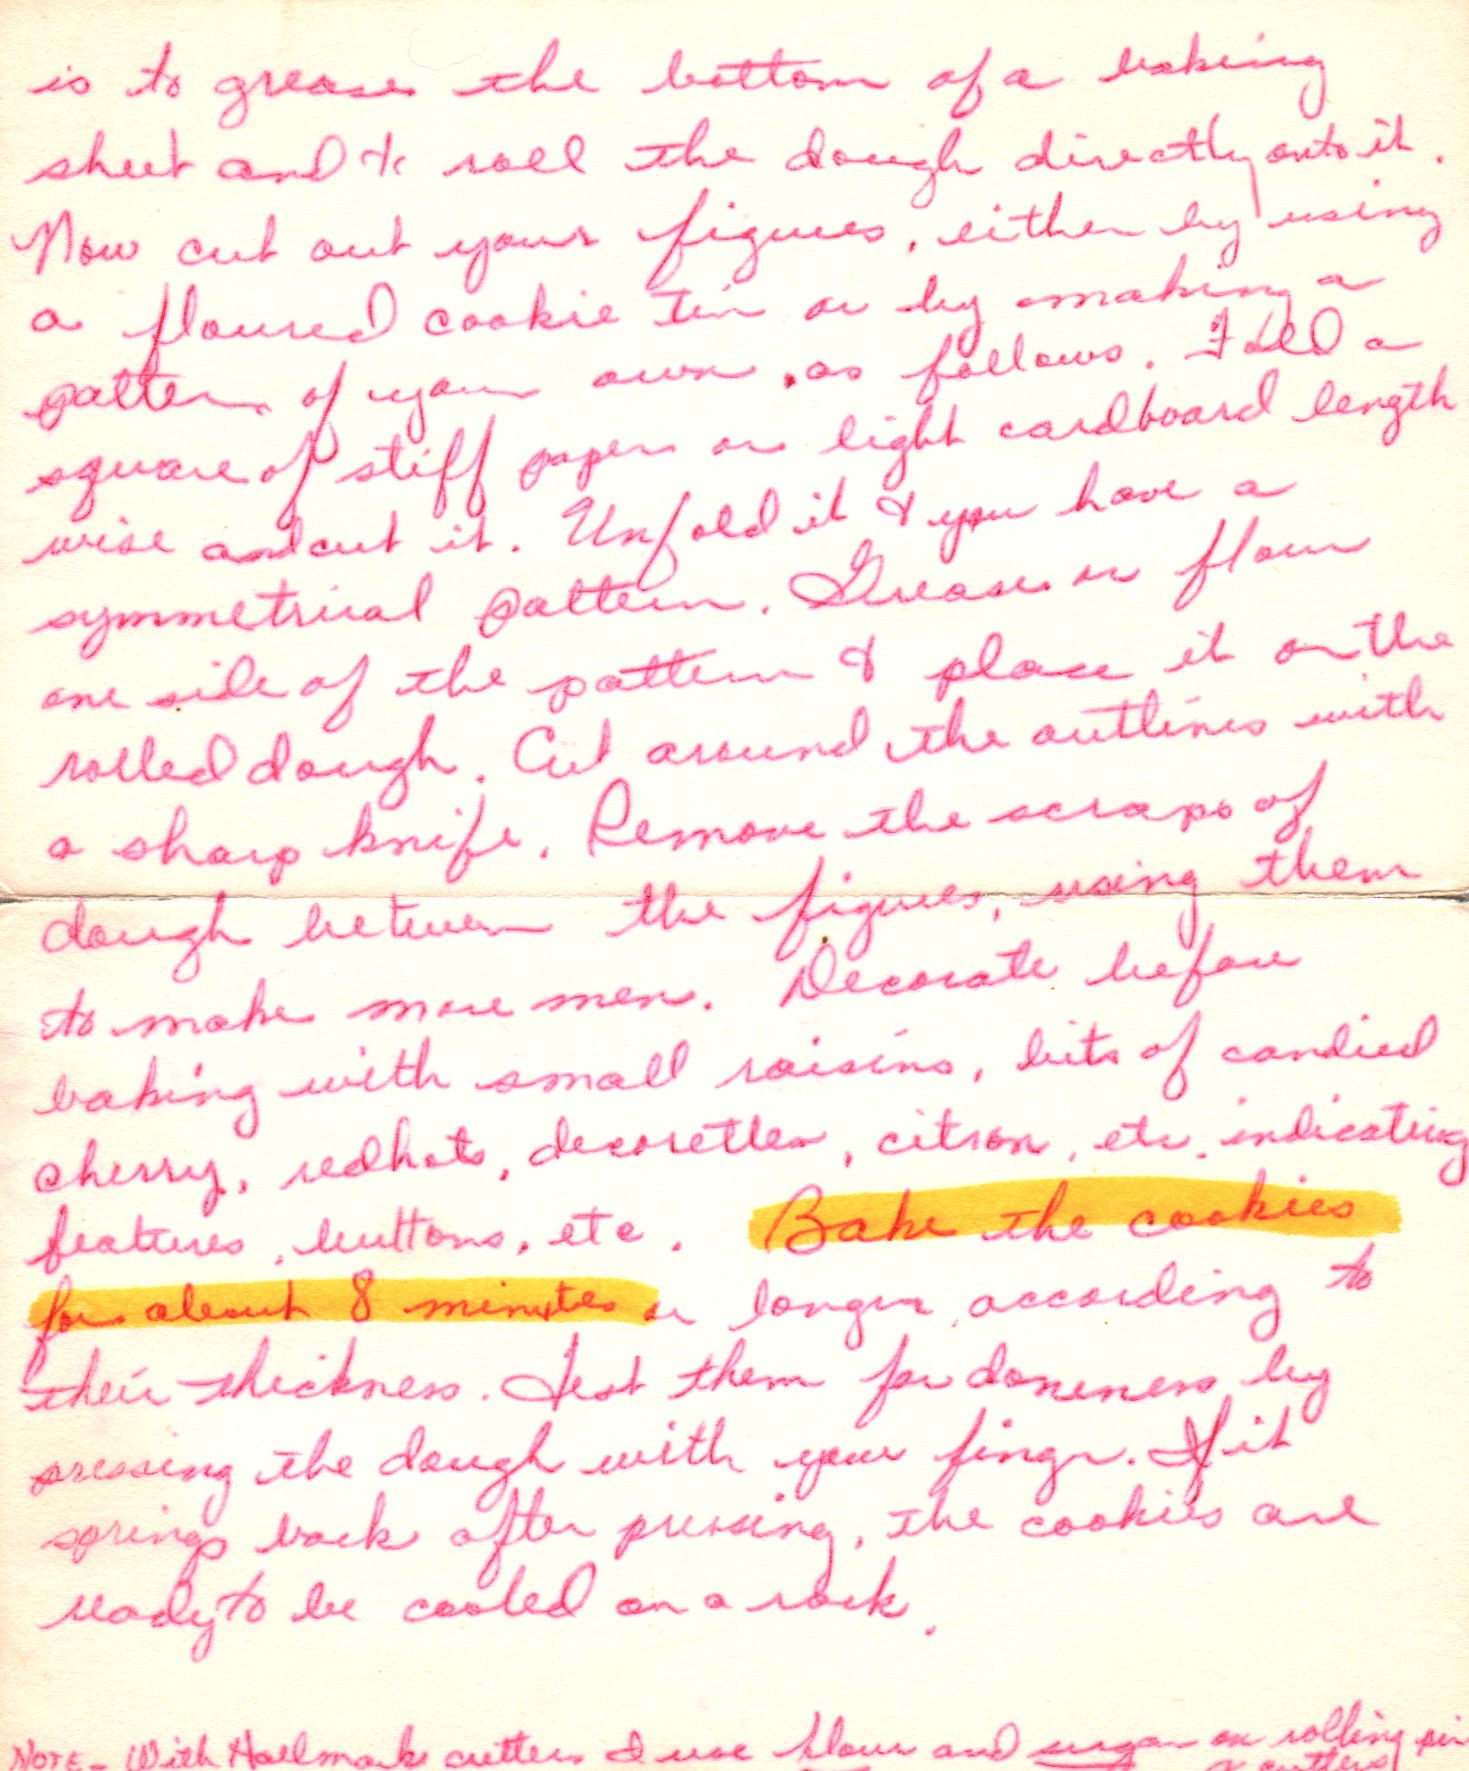 is to grease the bottom of a baking
sheet and to roll the dough directly onto it.
Now cut out your figures, either by using
a floured cookie tin or by making a
pattern of your own, as follows. Fold a
square of stiff paper or light cardboard length
wise and cut it. Unfold it & you have a
symmetrical pattern. Grease or flour
one side of the pattern & place it on the
rolled dough. Cut around the outlines with
a sharp knife. Remove the scraps of
dough between the figures, using them
to make more men. Decorate before
baking with small raisins, bits of candied
cherry, redhots, decorettes, citron, etc. indicating
features, buttons, etc. Bake the cookies
for about 8 minutes or longer according to
their thickness. Test them for doneness by
pressing the dough with your finger. If it
springs back after pressing, the cookies are
ready to be cooled on a rack.
NOTE - With Hallmark cutters I use flour and sugar on rolling pin
& cutters